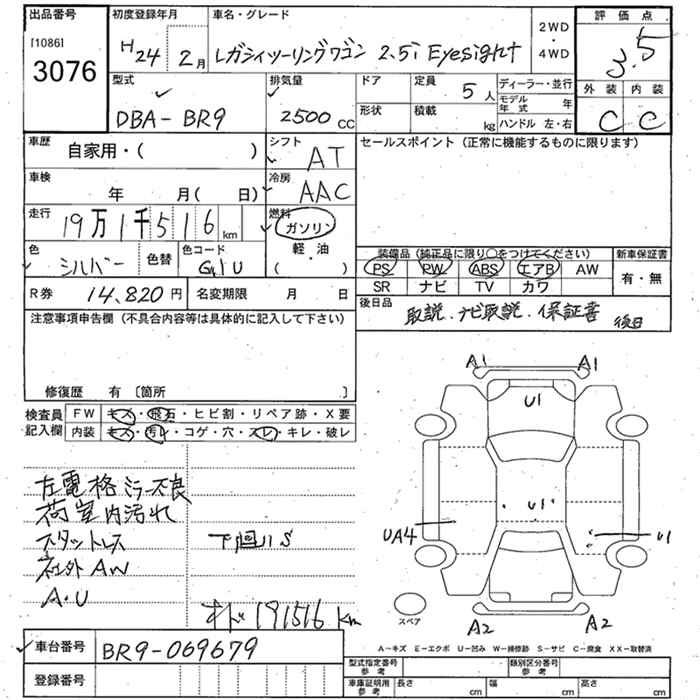 出品番号 初度登録年月 車名・グレード 2WD・4WD 評価点
[1086] 3076 H24 2月 レガシィツーリングワゴン 2.5i Eyesight 3.5
型式 排気量 ドア 定員 5人 ディーラー・並行 外装 内装
DBA-BR9 2500cc 形状 積載 kg モデル年式 年 ハンドル 左・右 C C
車歴 自家用・( ) シフト AT セールスポイント (正常に機能するものに限ります)
車検 年 月( 日) 冷房 AAC
走行 19万1千516km 燃料 ガソリン
軽油
( )
色 シルバー 色替 色コード G1U
装備品 (純正品に限り○をつけてください) 新車保証書
PS PW ABS エアB AW 有・無
SR ナビ TV カワ
R券 14,820円 名変期限 月 日
後日品 取説.ナビ取説.保証書 後日
注意事項申告欄 (不具合内容等は具体的に記入して下さい)
修復歴 有 〔箇所 〕
検査員記入欄 FW キズ・飛石・ヒビ割・リペア跡・X要
内装 キズ・汚レ・コゲ・穴・スレ・キレ・破レ
左電格ミラー不良
荷室内汚れ
スタットレス 下廻りS
社外AW
A・U
191516 km
A1 A1
U1
U1
UA4 U1
A2 A2
スペア
A－キズ E－エクボ U－凹み W－補修跡 S－サビ C－腐食 XX－取替済
車台番号 BR9-069679
登録番号
型式指定番号 参考 類別区分番号 参考
車庫証明用 参考 長さ cm 幅 cm 高さ cm